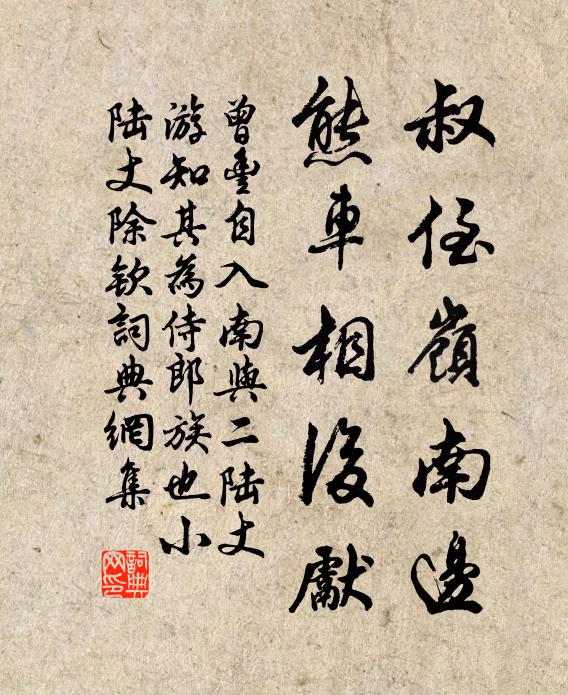 叔侄嶺南邊
熊車相後獻
曾豐自入南與二陸丈
游知其為侍郎族也小
陸丈除欽詞典網集
詞典網印